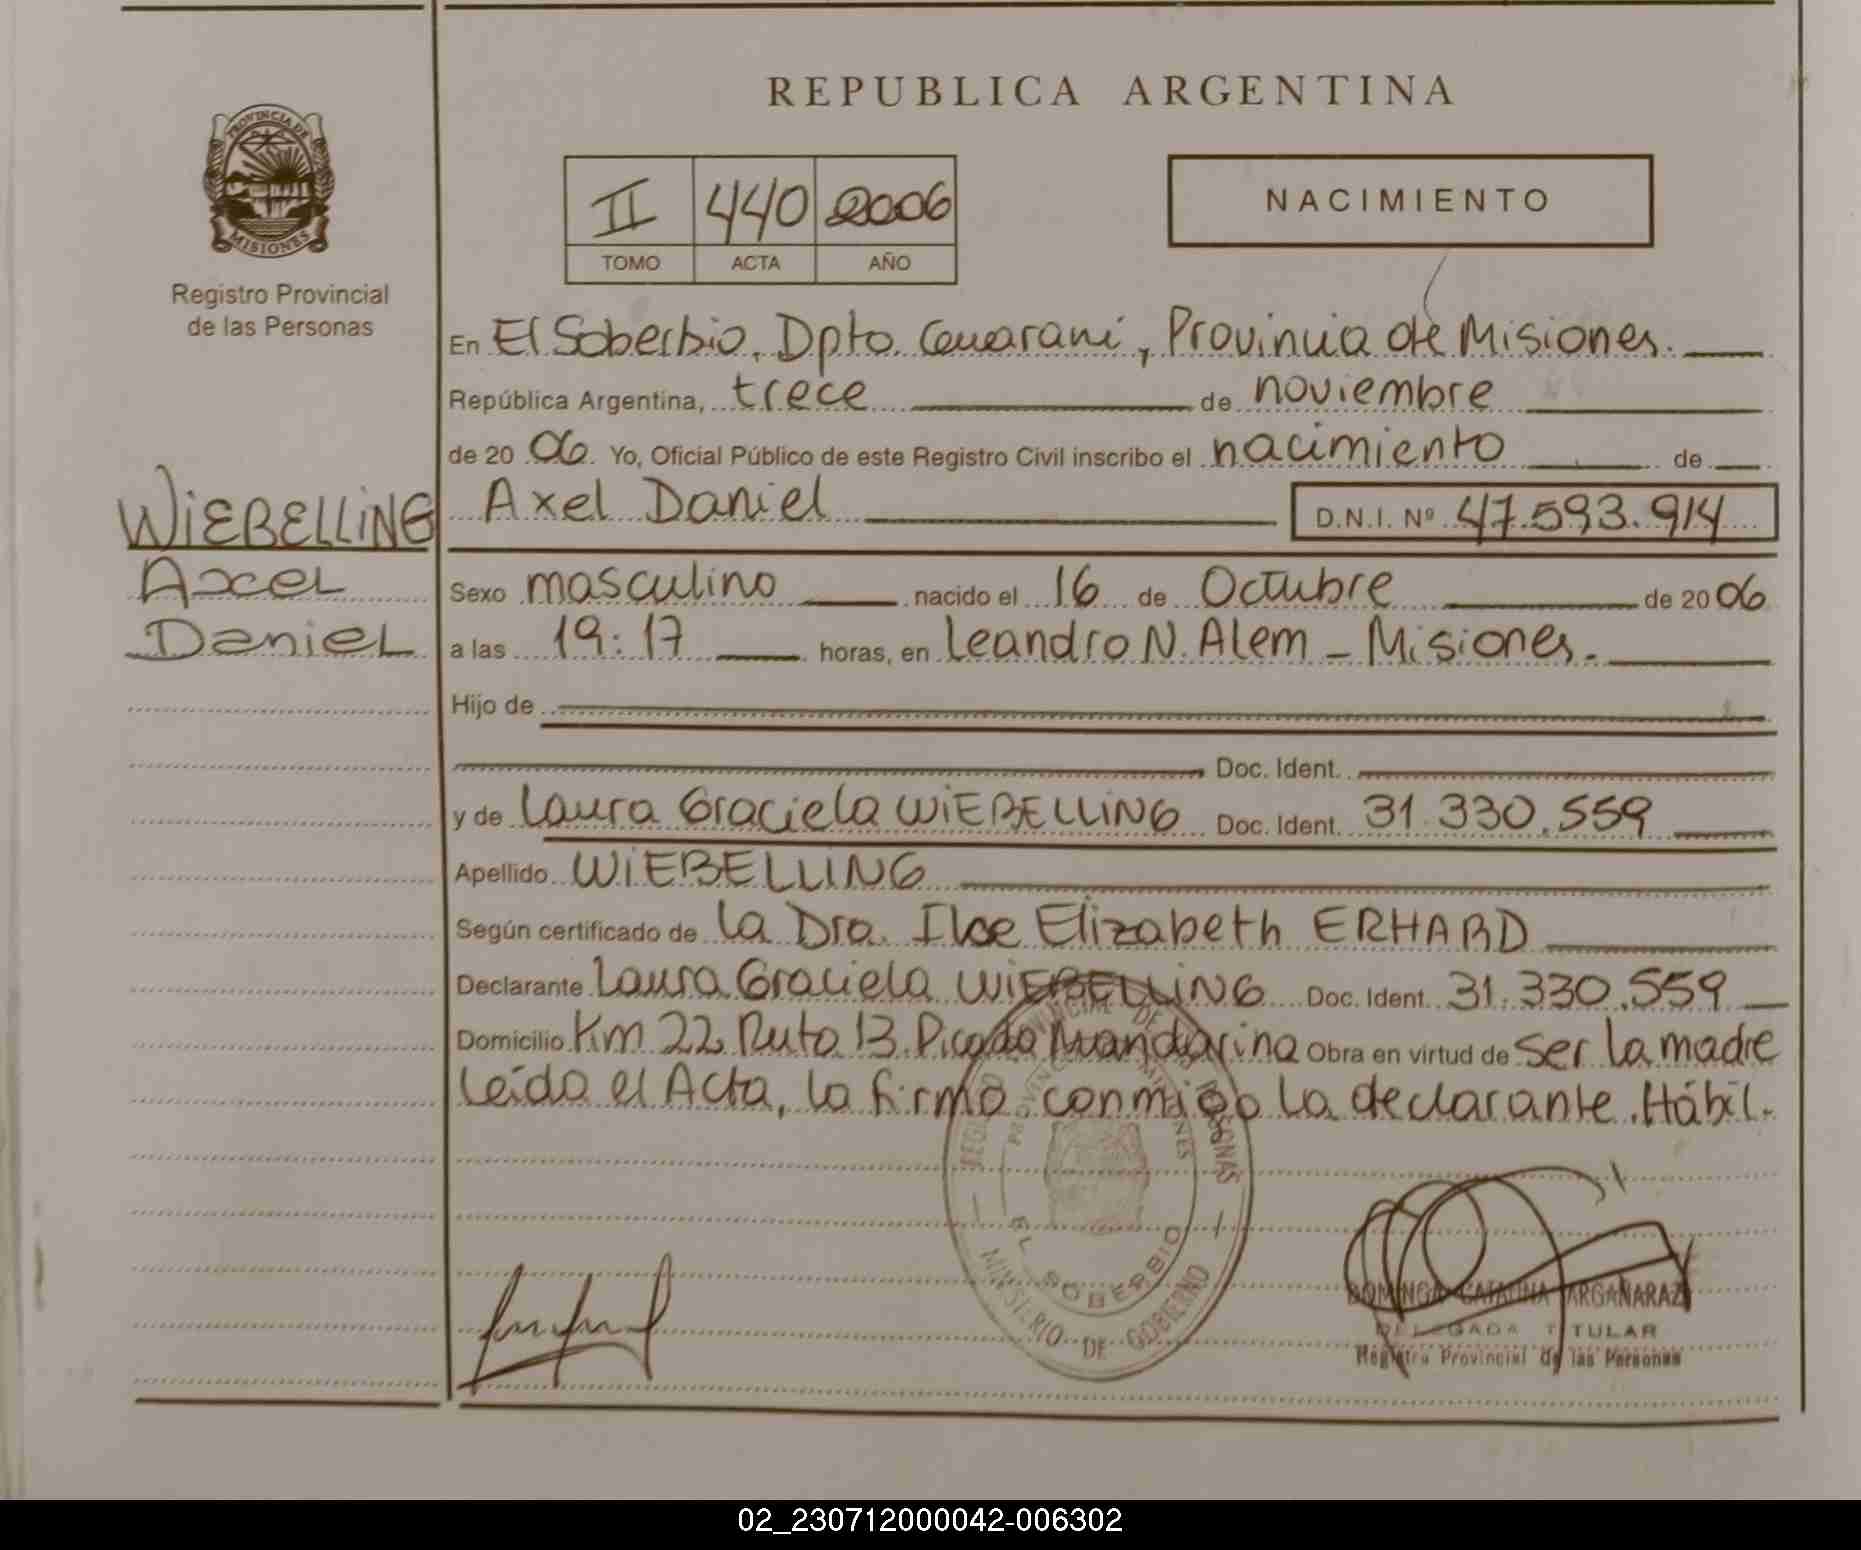 REPUBLICA ARGENTINA
PROVINCIA DE
MISIONES
Registro Provincial
de las Personas
II 440 2006
TOMO ACTA AÑO
NACIMIENTO
En El Soberbio, Dpto. Guaraní, Provincia de Misiones.
República Argentina, trece de noviembre
de 20 06 Yo, Oficial Público de este Registro Civil inscribo el nacimiento de
WIEBELLING
Axel
Daniel
Axel Daniel D.N.I. Nº 47.593.914
Sexo masculino nacido el 16 de Octubre de 20 06
a las 19:17 horas, en Leandro N. Alem - Misiones.
Hijo de
Doc. Ident.
y de Laura Graciela WIEBELLING Doc. Ident. 31.330.559
Apellido WIEBELLING
Según certificado de la Dra. Ilse Elizabeth ERHARD
Declarante Laura Graciela WIEBELLING Doc. Ident. 31.330.559
Domicilio Km 22 Ruta 13 Picada Mandarina Obra en virtud de ser la madre
Leída el Acta, la firma conmigo la declarante. Hábil.
PROVINCIA DE MISIONES
EL SOBERBIO
MINISTERIO DE GOBIERNO
DOMINGA CATALINA ARGAÑARAZ
DELEGADA TITULAR
Registro Provincial de las Personas
02_230712000042-006302